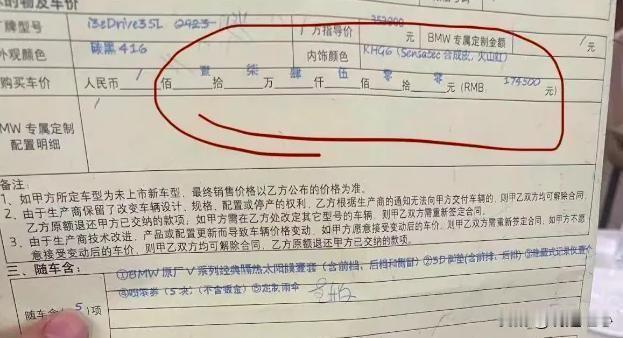 厂牌型号 i3eDrive35L 厂方指导价 353900 元 BMW 专属定制金额 / 元
外观颜色 碳黑416 内饰颜色 KHG6 (Sensatec 合成皮, 火山红)
购买车价 人民币 / 佰 壹 拾 柒 万 肆 仟 伍 佰 零 拾 零 元 (RMB: 174500 元)
BMW 专属定制
配置明细
备注:
1、如甲方所定车型为未上市新车型,最终销售价格以乙方公布的价格为准。
2、由于生产商保留了改变车辆设计、规格、配置或停产的权利,乙方根据生产商的通知无法向甲方交付车辆的,则甲乙双方均可解除合同,
乙方原额退还甲方已交纳的款项;如甲方需在乙方处改定其它型号的车辆,则甲乙双方需重新签定合同。
3、由于生产商技术改进、产品或配置更新而导致车辆价格变动,如甲方愿意接受变动后的车价,则甲乙双方需重新签定合同,如甲方不愿
意接受变动后的车价,则甲乙双方均可解除合同,乙方原额退还甲方已交纳的款项。
三、随车含:
随车含(5)项 ①BMW原厂V系列经典隔热太阳膜壹套(含前档、后档和侧窗)②3D脚垫(含前排、后排)③隐藏式记录仪壹个
④喷漆券(5块)(不含钣金)⑤定制雨伞